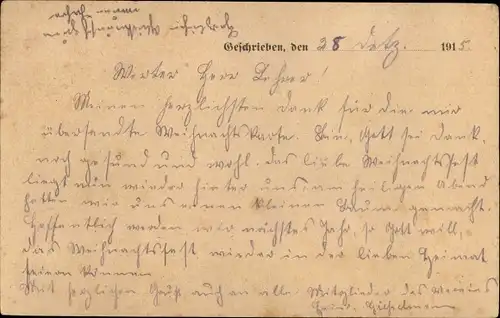 Herzlichen Glückwunsch zum
neuen Jahre
Geschrieben, den 28 Detz. 1915.
Werter Herr Lehrer!
Meinen herzlichsten Dank für die mir
übersandte Weihnachtskarte. Bin, Gott sei Dank,
noch gesund und wohl. das liebe Weihnachtsfest
liegt nun wieder hinter uns. am heiligen Abend
hatten wir uns einen kleinen Baum gemacht.
Hoffentlich werden wir nächstes Jahr, so Gott will,
das Weihnachtsfest wieder in der lieben Heimat
feiern können
Mit herzlichen Gruß auch an alle Mitglieder des Vereins
Heinr.